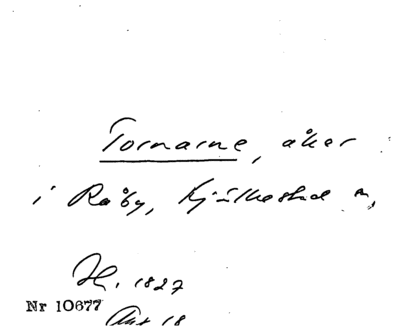 Tornarne, åker
i Råby, Kjulkestad sn,
H. 1827
Nr 10677
Akt 18